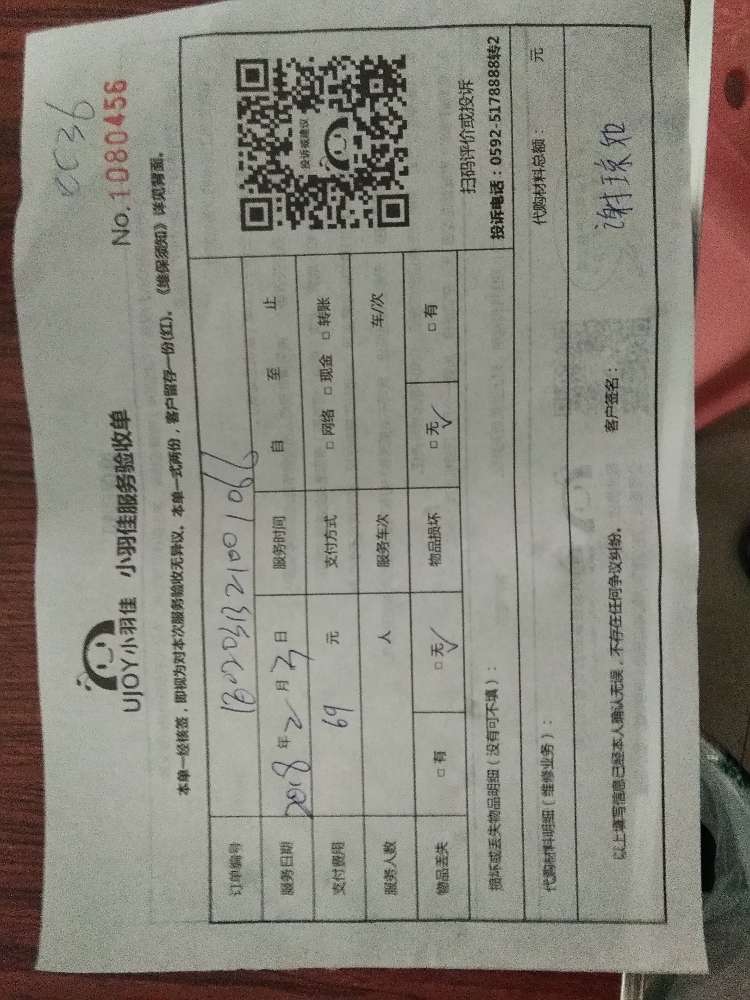 0036
No.1080456
UJOY小羽佳 小羽佳服务验收单
本单一经核签，即视为对本次服务验收无异议。本单一式两份，客户留存一份(红)。《维保须知》详见背面。
订单编号 1802031321001066
服务日期 2018年2月3日 服务时间 自 至 止
支付费用 69 元 支付方式 □ 网络 □ 现金 □ 转账
服务人数 人 服务车次 车/次
物品丢失 □ 有 □ 无 √ 物品损坏 □ 无 √ □ 有
投诉或建议
扫码评价或投诉
投诉电话：0592-5178888转2
损坏或丢失物品明细（没有可不填）：
代购材料明细（维修业务）： 代购材料总额： 元
以上填写信息已经本人确认无误，不存在任何争议纠纷。 客户签名：